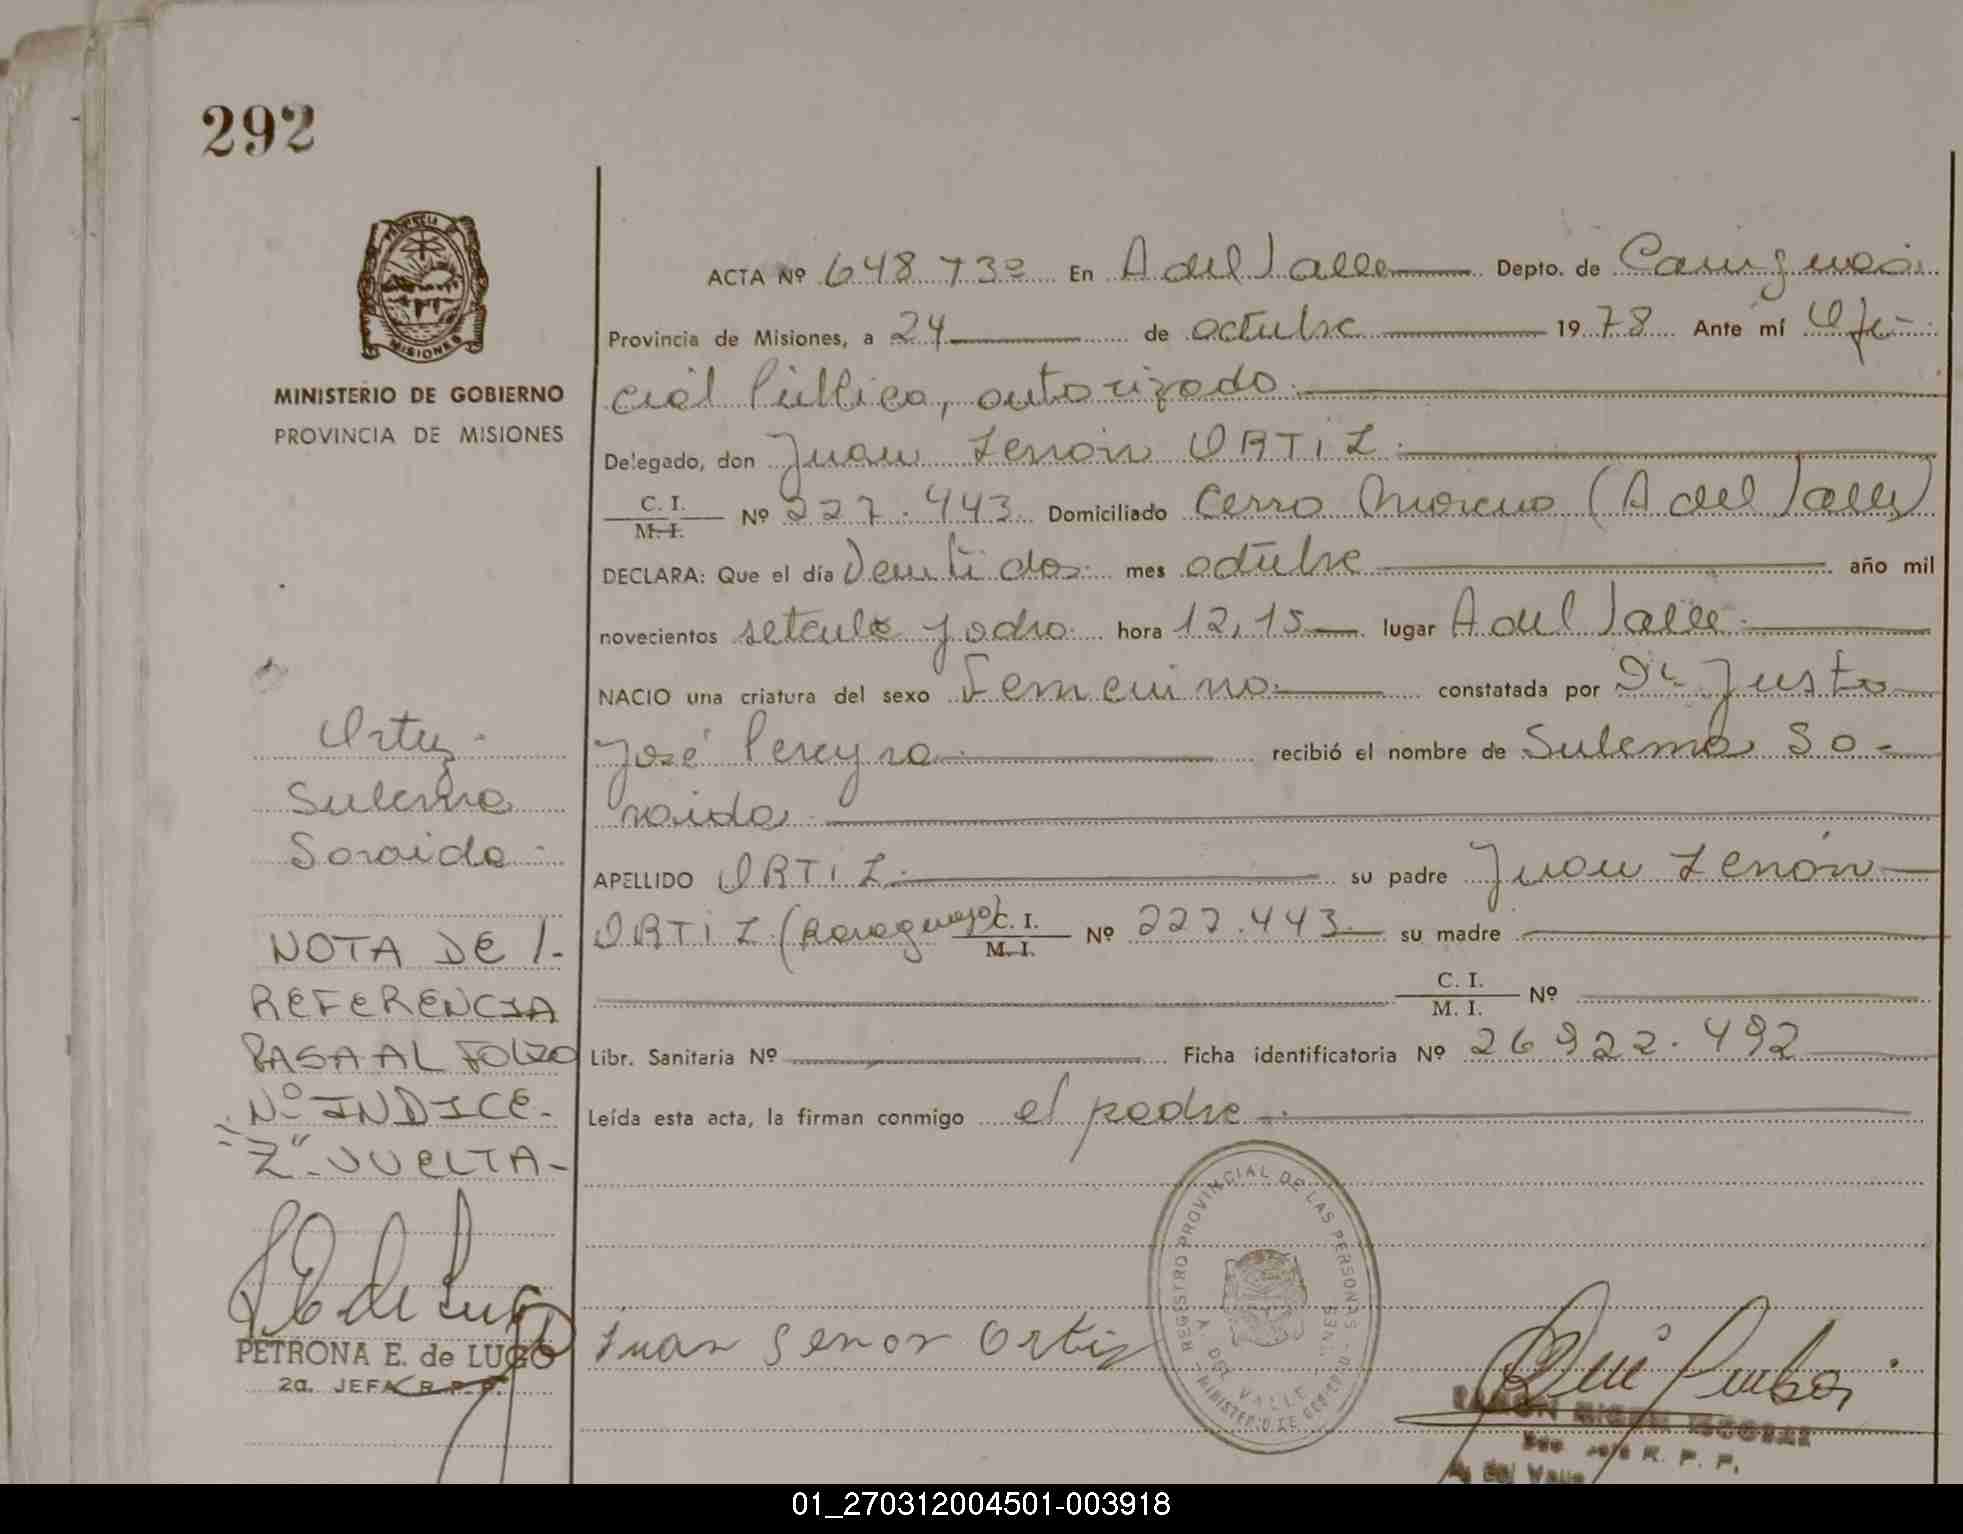 292
PROVINCIA
MISIONES
MINISTERIO DE GOBIERNO
PROVINCIA DE MISIONES
ACTA Nº 648 T3º En A del Valle Depto. de Cainguas
Provincia de Misiones, a 24 de octubre 1978 Ante mí Ofi-
cial Público, autorizado.
Delegado, don Juan Zenón ORTIZ.
C. I.
M. I. Nº 227.443 Domiciliado Cerro Moreno (A del Valle)
DECLARA: Que el día Veintidos mes octubre año mil
novecientos setenta y ocho hora 12,15 lugar A del Valle.
NACIO una criatura del sexo Femenino constatada por Dr Justo
José Pereyra recibió el nombre de Sulema So-
raida
APELLIDO ORTIZ su padre Juan Zenón
ORTIZ (Paraguayo) C. I.
M. I. Nº 227.443 su madre
C. I.
M. I. Nº
Libr. Sanitaria Nº Ficha identificatoria Nº 26922.492
Leída esta acta, la firman conmigo el padre.
Ortiz.
Sulema
Soraida
NOTA DE /.
REFERENCIA
PASA AL FOLIO
Nº INDICE.
"Z" VUELTA-
PETRONA E. de LUGO
2a. JEFA R.P.P.
Juan Senon Ortiz
REGISTRO PROVINCIAL DE LAS PERSONAS
A. DEL VALLE
R. P. P.
A. del Valle
01_270312004501-003918